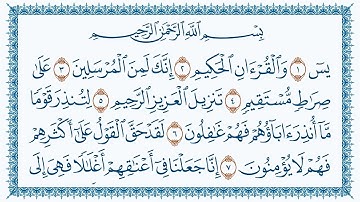 بِسْمِ اللَّهِ الرَّحْمَٰنِ الرَّحِيمِ
يسٓ ١ وَالْقُرْءَانِ الْحَكِيمِ ٢ إِنَّكَ لَمِنَ الْمُرْسَلِينَ ٣ عَلَىٰ
صِرَاطٍ مُّسْتَقِيمٍ ٤ تَنزِيلَ الْعَزِيزِ الرَّحِيمِ ٥ لِتُنذِرَ قَوْمًا
مَّآ أُنذِرَ ءَابَآؤُهُمْ فَهُمْ غَٰفِلُونَ ٦ لَقَدْ حَقَّ الْقَوْلُ عَلَىٰٓ أَكْثَرِهِمْ
فَهُمْ لَا يُؤْمِنُونَ ٧ إِنَّا جَعَلْنَا فِىٓ أَعْنَٰقِهِمْ أَغْلَٰلًا فَهِىَ إِلَى